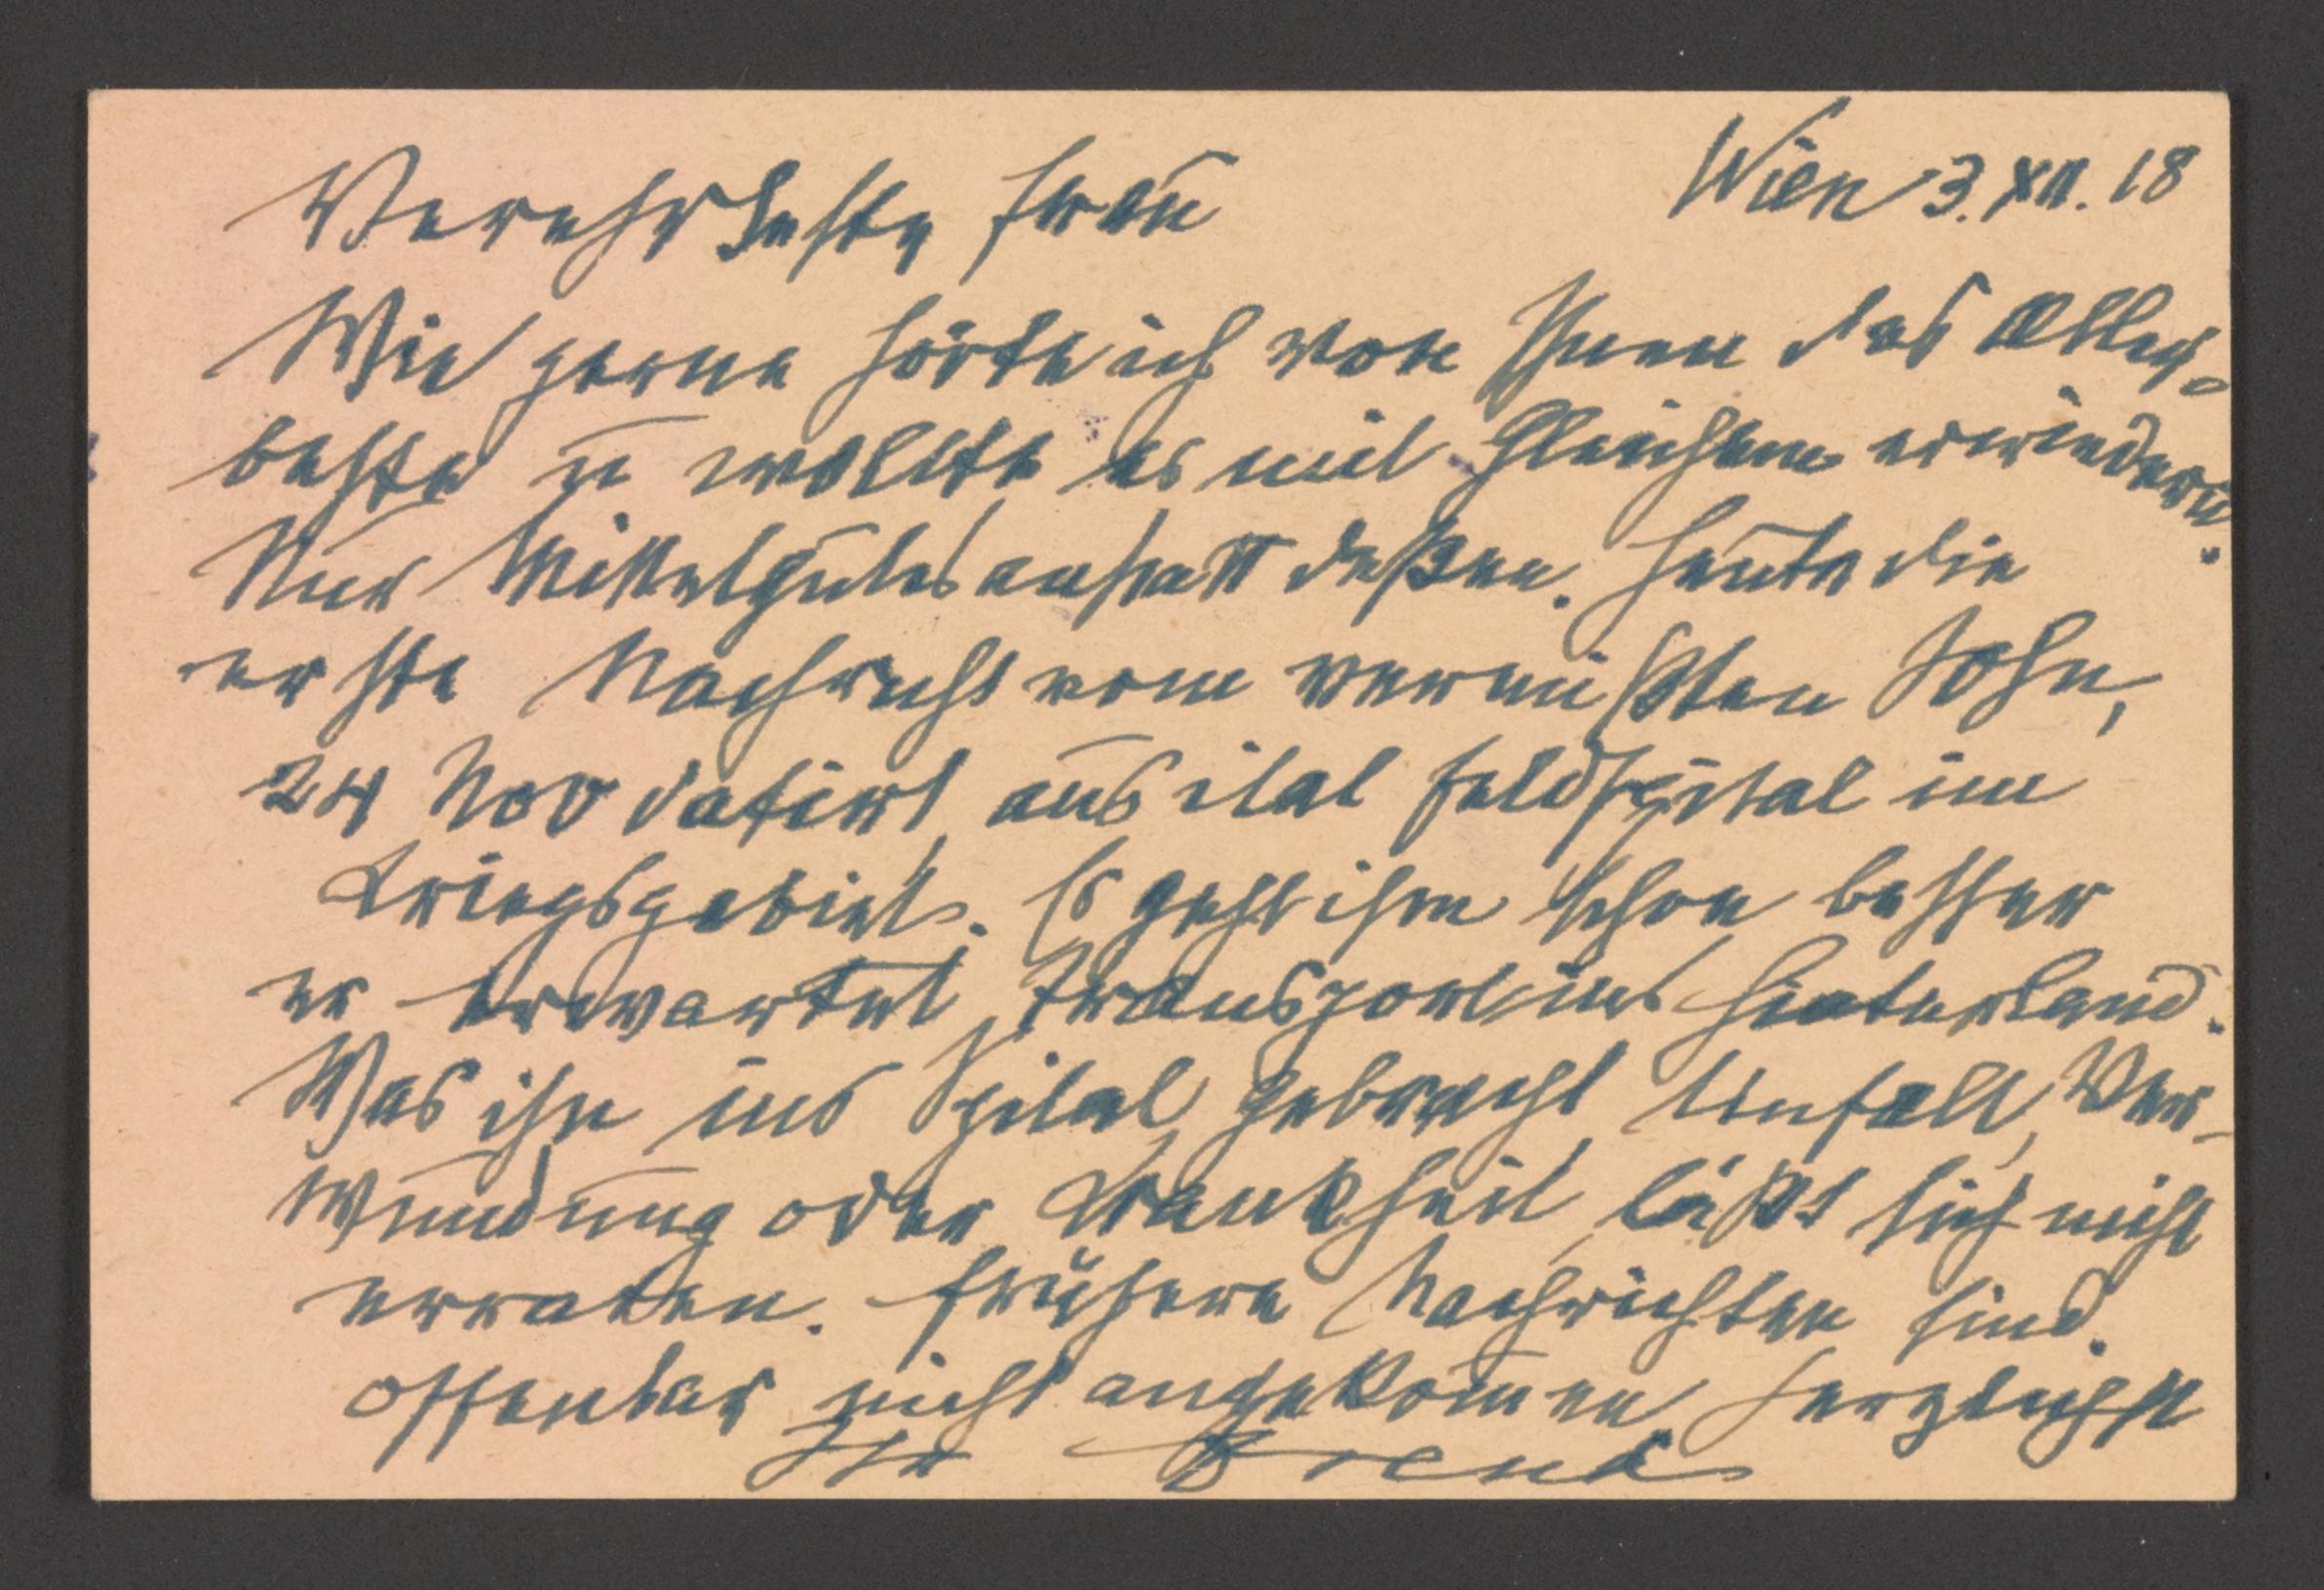 Wien 3. XII. 18
Verehrteste Frau
Wie gerne hörte ich von Ihnen das Aller-
beste u wollte es mit Gleichem erwiedern.
Nur Mittelgutes anstatt deßen. Heute die
erste Nachricht vom vermißten Sohn,
24 Nov datirt aus ital Feldspital im
Kriegsgebiet. Es geht ihm schon besser
er erwartet Transport ins Hinterland.
Was ihn ins Spital gebracht, Unfall, Ver-
wundung oder Krankheit, läßt sich nicht
erraten. Frühere Nachrichten sind
offenbar nicht angekommen. Herzlichst
Ihr Freud